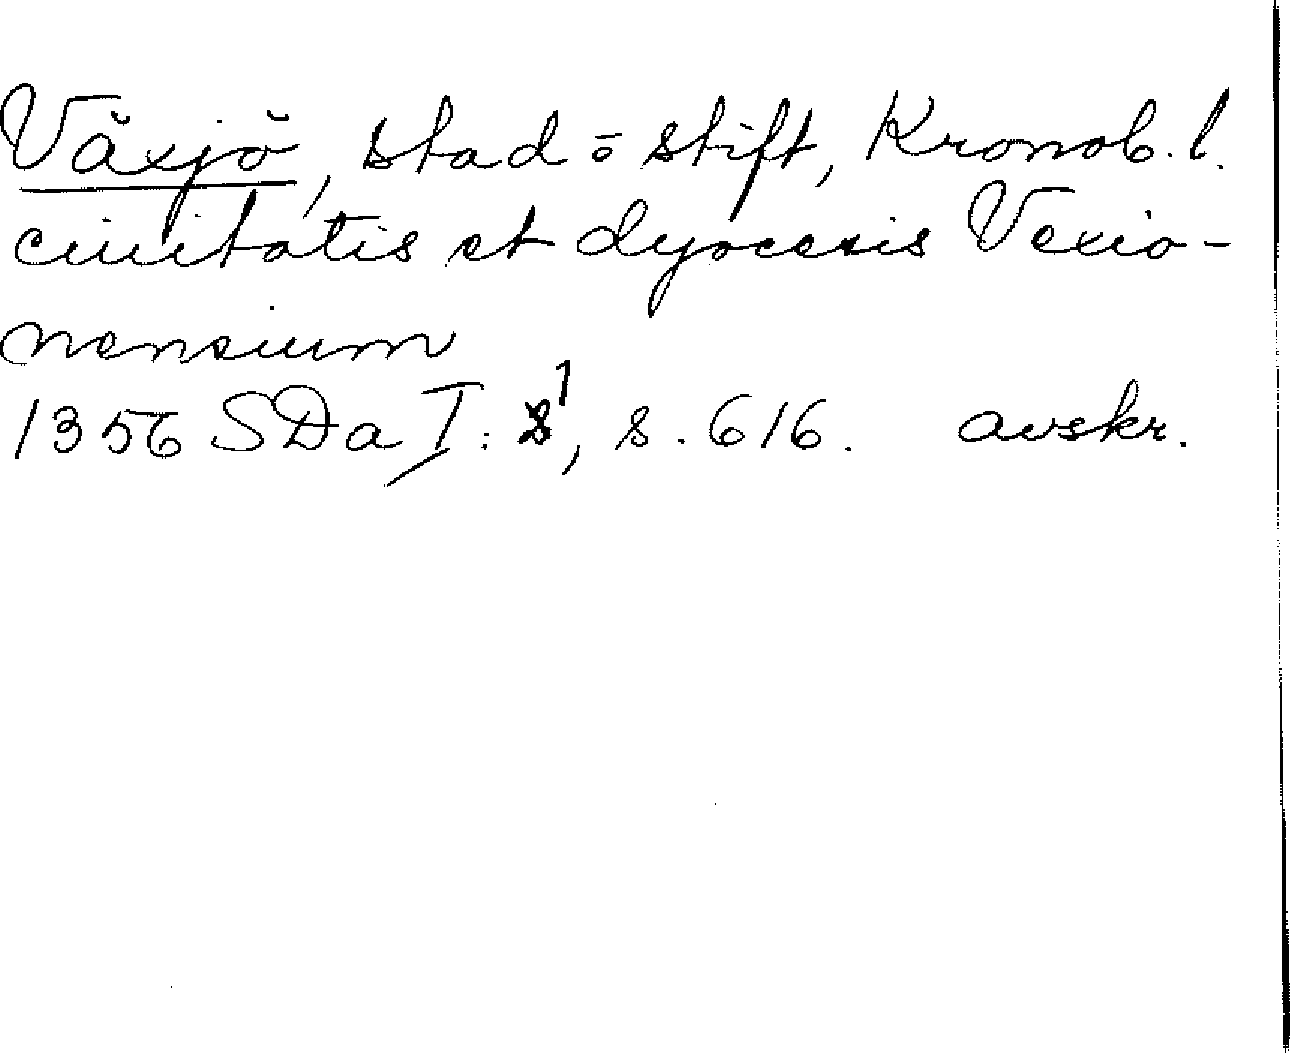 Växjö, stad ō stift, Kronob. l.
ciuitatis et dyocesis Vexio-
nensium
1356 SDa I: 1, s. 616. avskr.